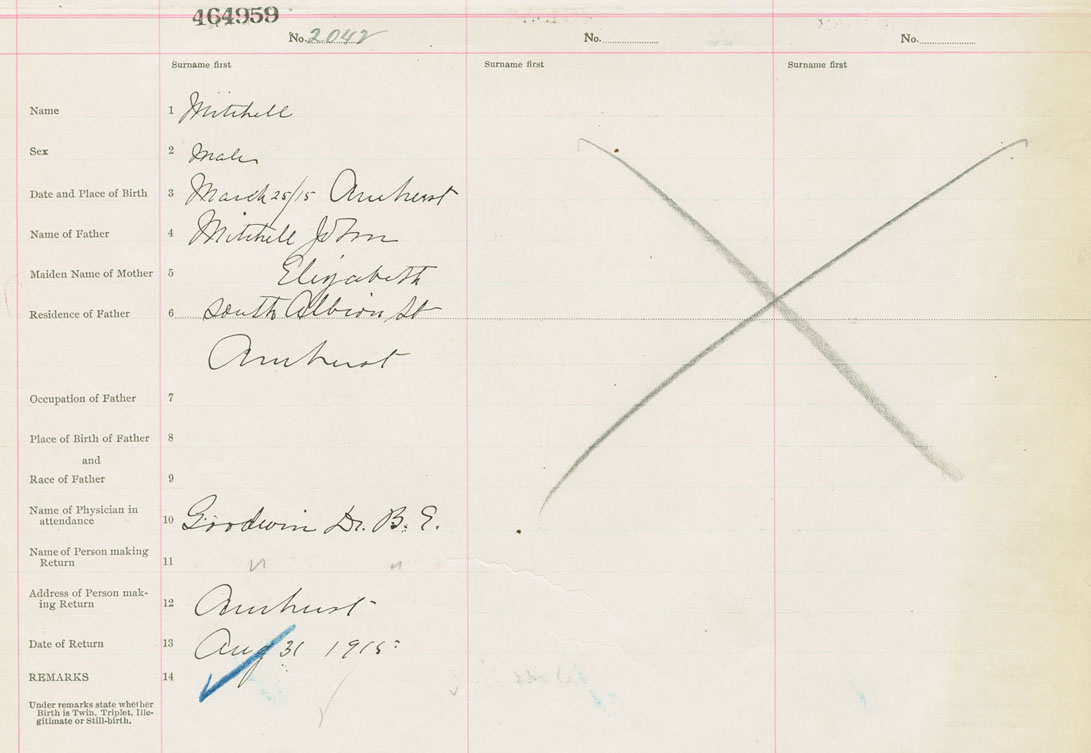 464959
No. 2042 No. No.
Surname first Surname first Surname first
Name 1 Mitchell
Sex 2 Male
Date and Place of Birth 3 March 25/15 Amherst
Name of Father 4 Mitchell John
Maiden Name of Mother 5 Elizabeth
Residence of Father 6 South Albion St
Amherst
Occupation of Father 7
Place of Birth of Father 8
and
Race of Father 9
Name of Physician in
attendance 10 Goodwin Dr. B. E.
Name of Person making
Return 11 " "
Address of Person mak-
ing Return 12 Amherst
Date of Return 13 Aug 31 1915
REMARKS 14
Under remarks state whether
Birth is Twin, Triplet, Ille-
gitimate or Still-birth.